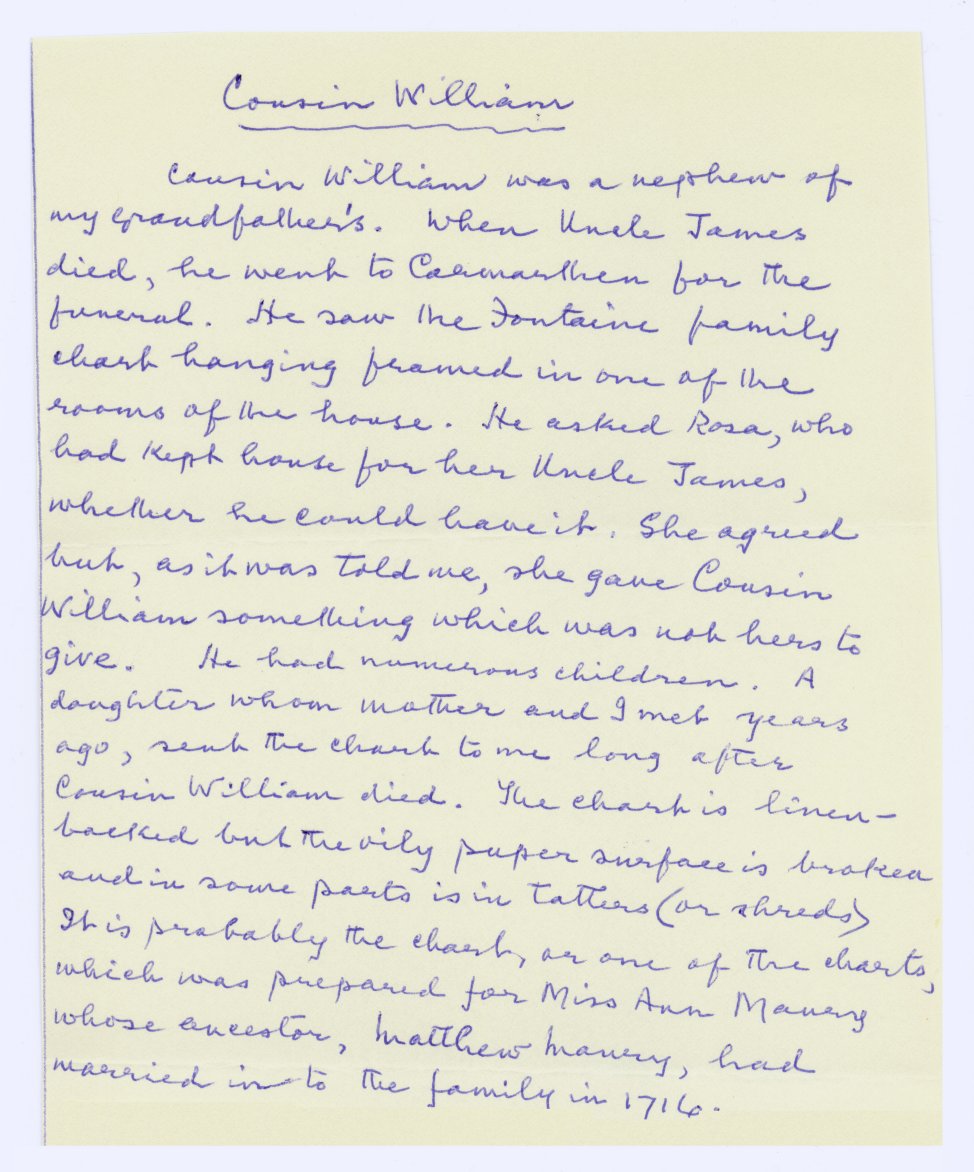 Cousin William
Cousin William was a nephew of
my grandfather's. When Uncle James
died, he went to Carmarthen for the
funeral. He saw the Fontaine family
chart hanging framed in one of the
rooms of the house. He asked Rosa, who
had kept house for her Uncle James,
whether he could have it. She agreed
but, as it was told me, she gave Cousin
William something which was not hers to
give. He had numerous children. A
daughter whom mother and I met years
ago, sent the chart to me long after
Cousin William died. The chart is linen-
backed but the oily paper surface is broken
and in some parts is in tatters (or shreds)
It is probably the chart, or one of the charts,
which was prepared for Miss Ann Maury
whose ancestor, Matthew Maury, had
married in to the family in 1716.